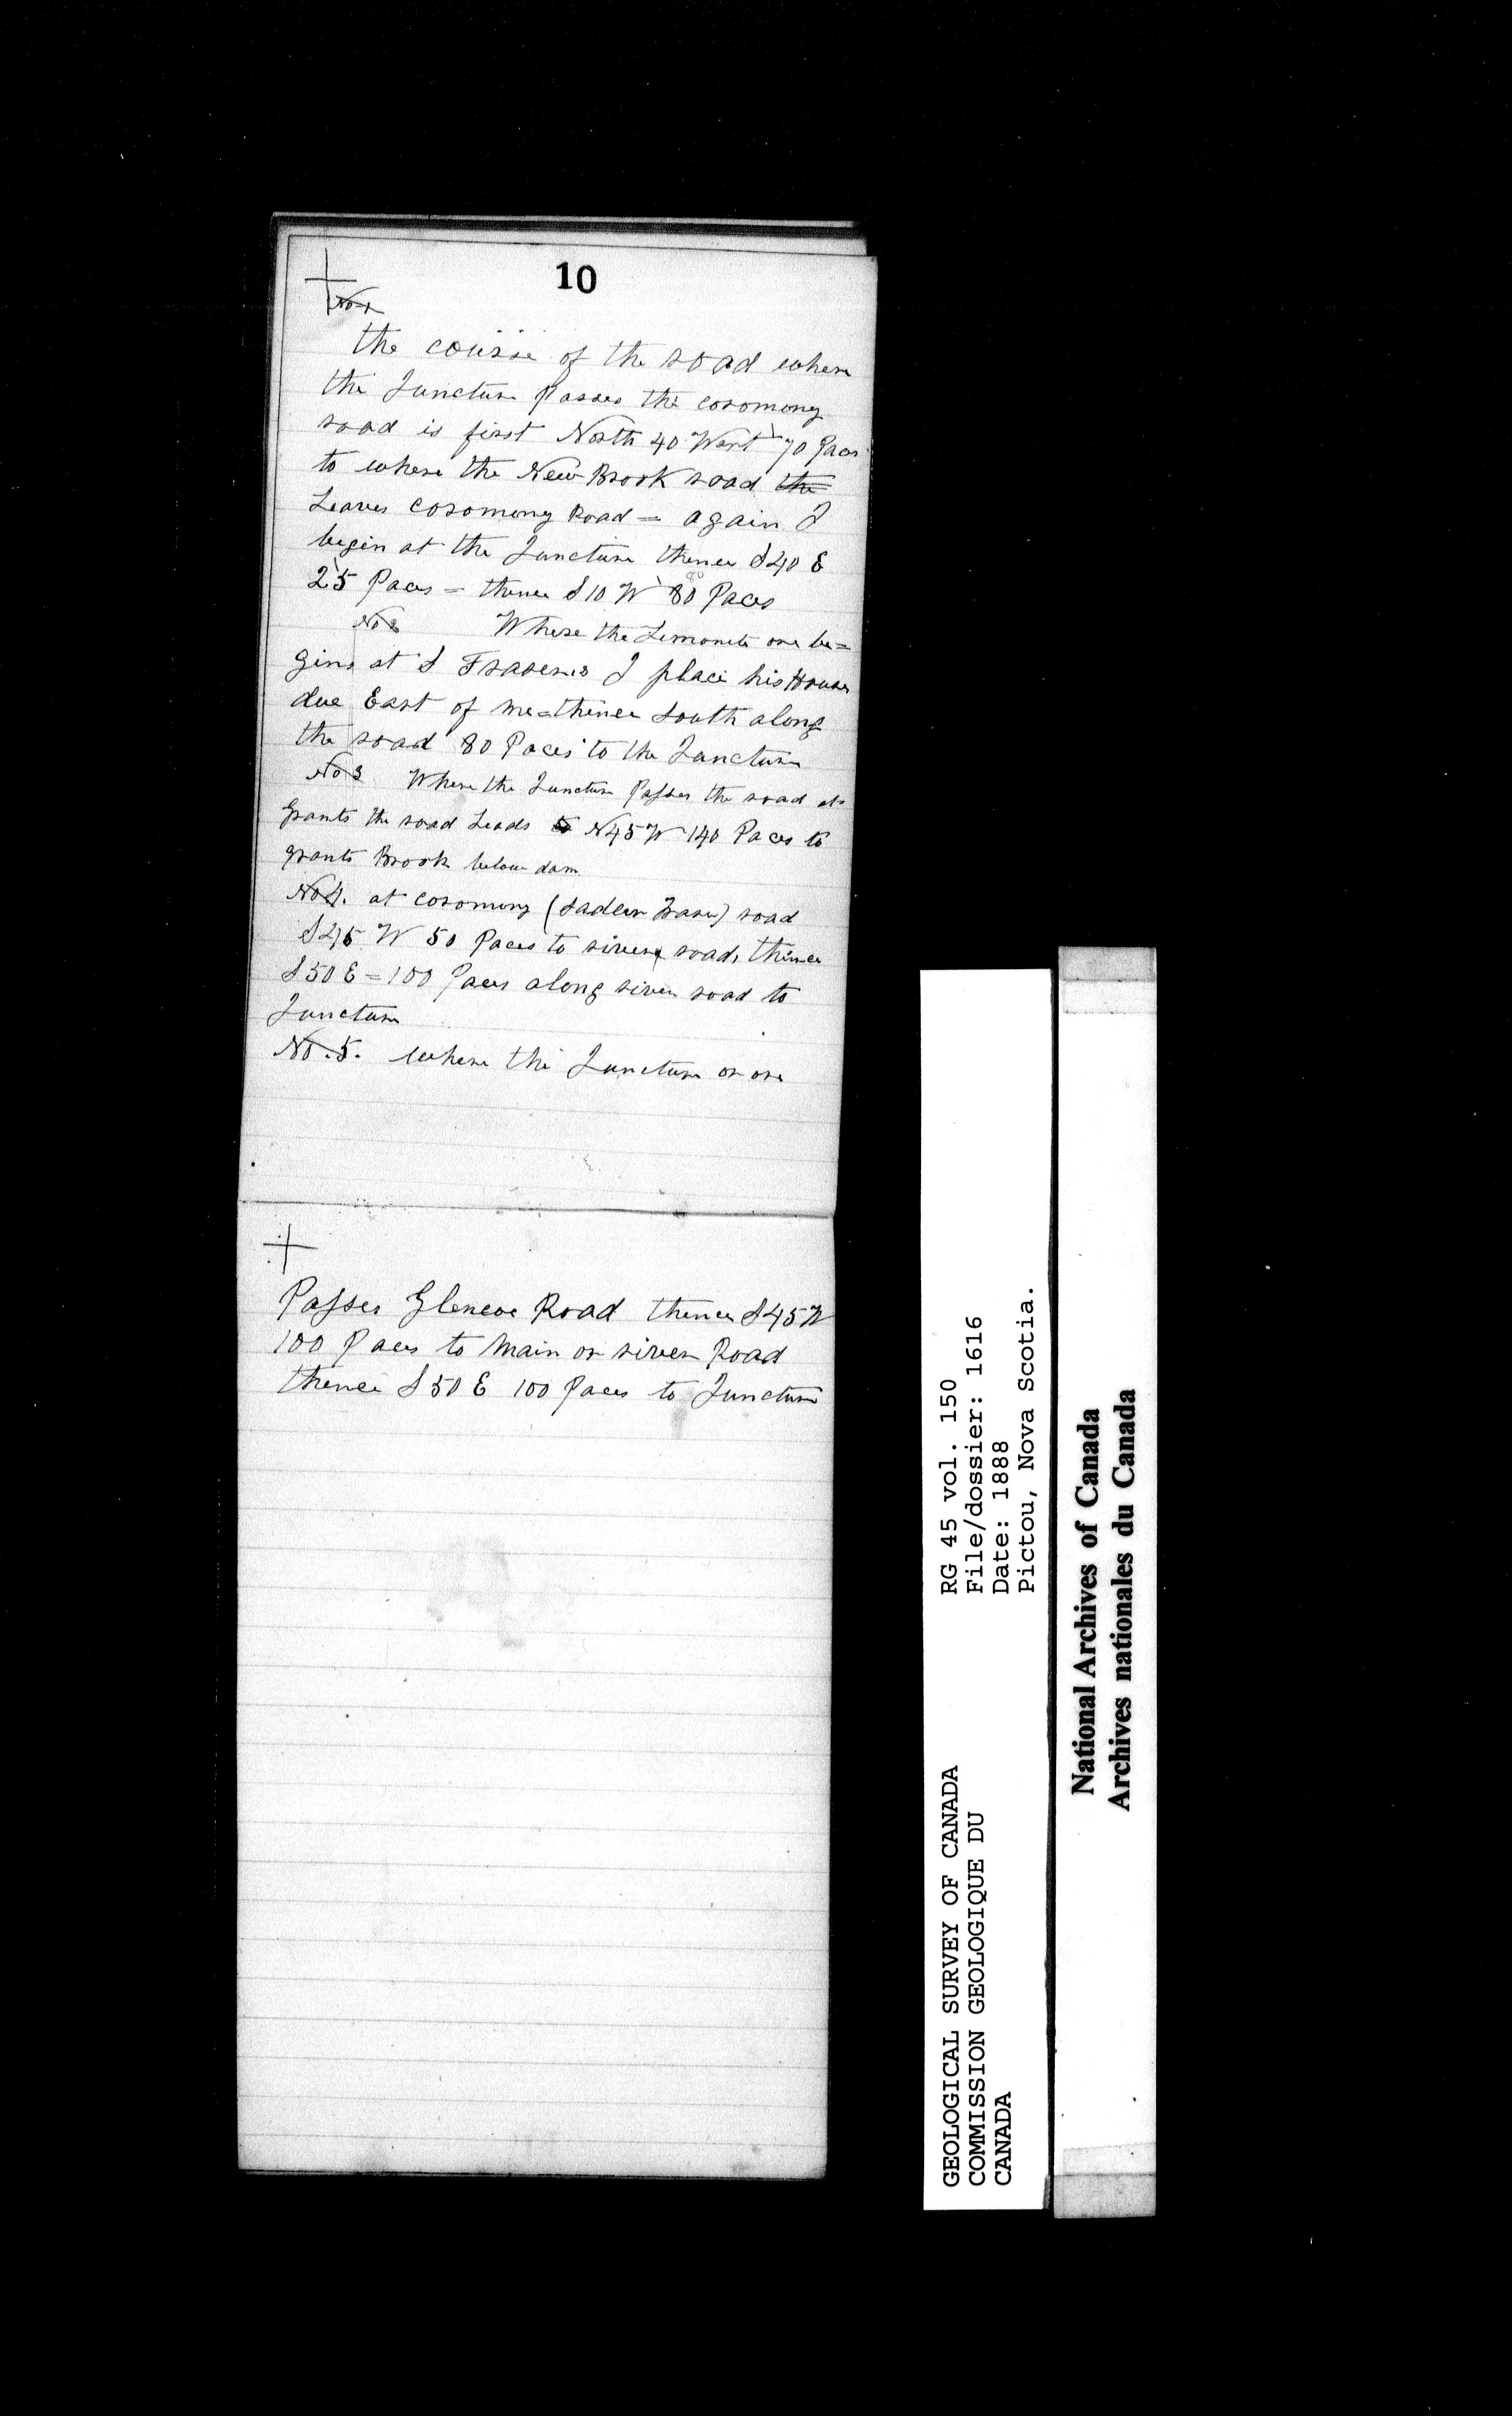 10
No 1
the course of the road where
the Juncture Passes the coromony
road is first North 40 West 70 Paces
to where the New Brook road the
Leaves coromony Road = again I
begin at the Juncture thence S40 E
25 Paces = thence S 10 W 80 Paces
No 2 Where the Limonite ore be=
gins at S Frasers I place his House
due East of me = thence South along
the road 80 Paces to the Juncture
No 3 Where the Juncture Passes the road at
Grants the road Leads to N45 W 140 Paces to
Grants Brook below dam
No 4. at coromony (Sadler Fraser) road
S45 W 50 Paces to river road, thence
S50 E = 100 Paces along river road to
Juncture
No. 5. where the Juncture or ore
Passes Glencoe Road thence S45 W
100 Paces to Main or river Road
thence S50 E 100 Paces to Juncture
GEOLOGICAL SURVEY OF CANADA
COMMISSION GEOLOGIQUE DU
CANADA
RG 45 vol. 150
File/dossier: 1616
Date: 1888
Pictou, Nova Scotia.
National Archives of Canada
Archives nationales du Canada